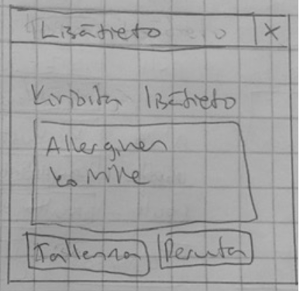 Lisätieto X
Kirjoita lisätieto
Allerginen
Tallenna Peruuta